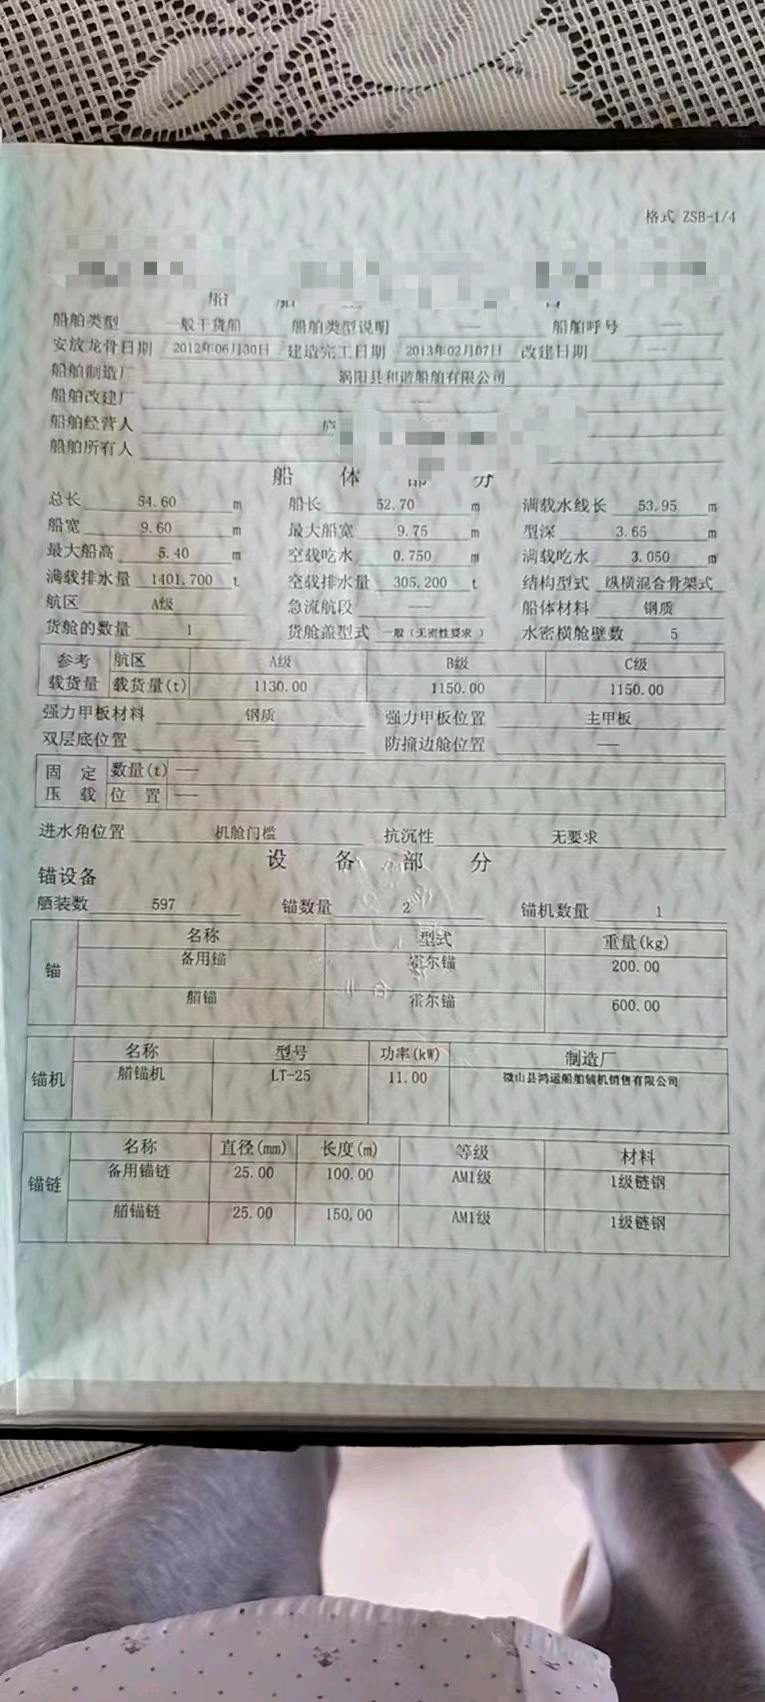 格式 ZSB-1/4
船舶类型 一般干货船 船舶类型说明 —— 船舶呼号 ——
安放龙骨日期 2012年06月30日 建造完工日期 2013年02月07日 改建日期 ——
船舶制造厂 涡阳县和谐船舶有限公司
船舶改建厂 ——
船舶经营人
船舶所有人
船 体 部 分
总长 54.60 m 船长 52.70 m 满载水线长 53.95 m
船宽 9.60 m 最大船宽 9.75 m 型深 3.65 m
最大船高 5.40 m 空载吃水 0.750 m 满载吃水 3.050 m
满载排水量 1401.700 t 空载排水量 305.200 t 结构型式 纵横混合骨架式
航区 A级 急流航段 —— 船体材料 钢质
货舱的数量 1 货舱盖型式 一般（无密性要求 ） 水密横舱壁数 5
参考 航区 A级 B级 C级
载货量 载货量(t) 1130.00 1150.00 1150.00
强力甲板材料 钢质 强力甲板位置 主甲板
双层底位置 —— 防撞边舱位置 ——
固 定 数量(t) ——
压 载 位 置 ——
进水角位置 机舱门槛 抗沉性 无要求
设 备 部 分
锚设备
舾装数 597 锚数量 2 锚机数量 1
锚 名称 型式 重量(kg)
备用锚 霍尔锚 200.00
艏锚 霍尔锚 600.00
锚机 名称 型号 功率(kW) 制造厂
艏锚机 LT-25 11.00 微山县鸿运船舶辅机销售有限公司
锚链 名称 直径(mm) 长度(m) 等级 材料
备用锚链 25.00 100.00 AM1级 1级链钢
艏锚链 25.00 150.00 AM1级 1级链钢